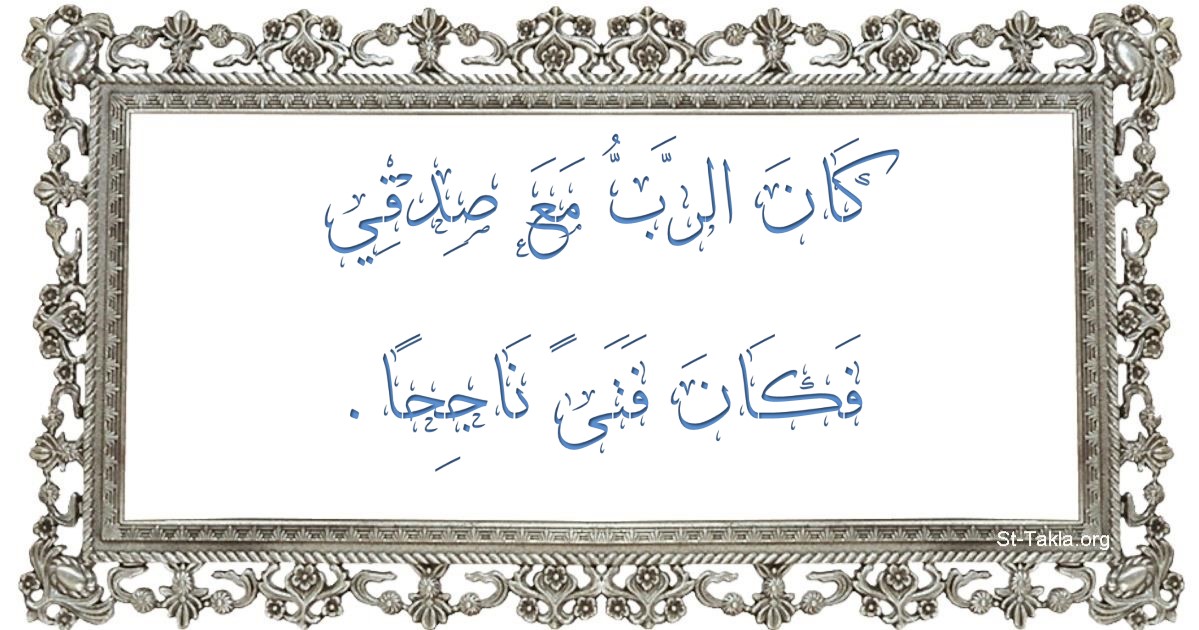 كَانَ الرَّبُّ مَعَ صِدْقِي
فَكَانَ فَتَىً نَاجِحًا .
St-Takla.org